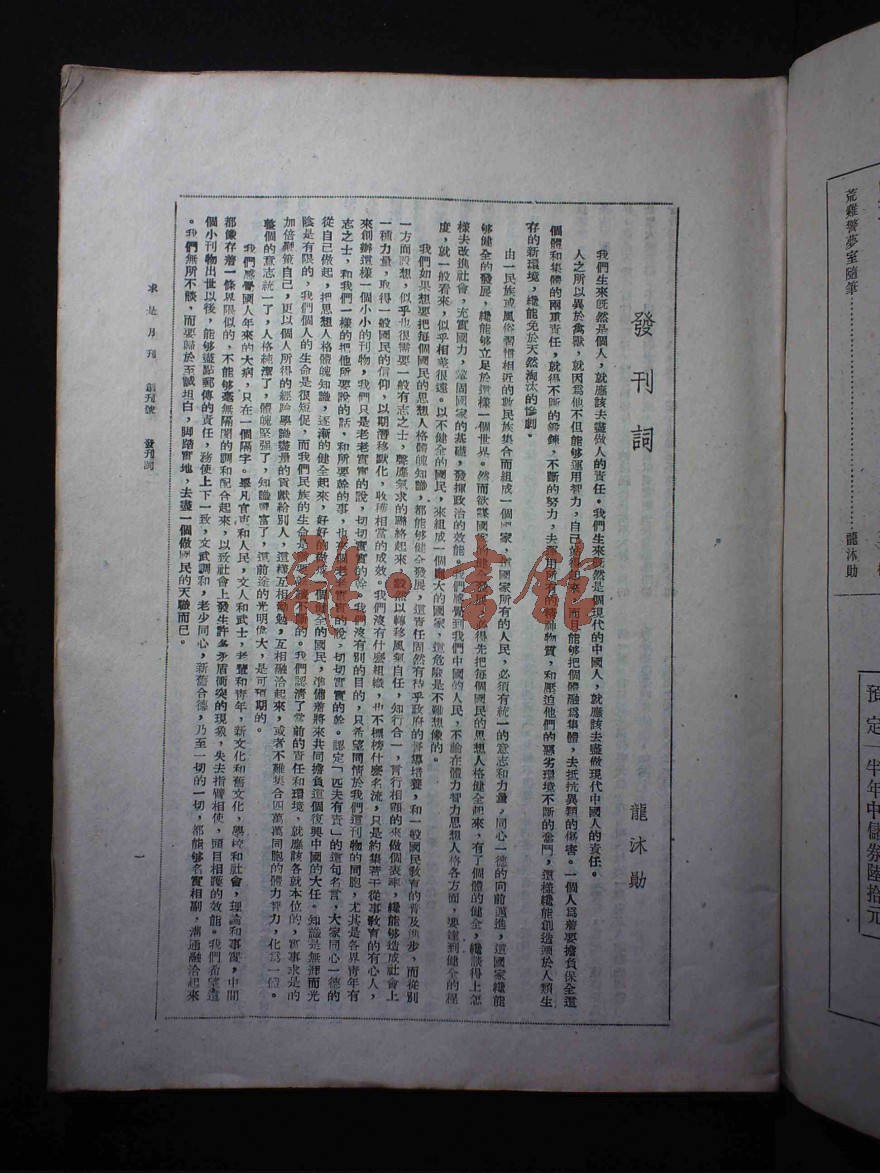 發刊詞
龍沐勛
我們生來既然是個人，就應該去盡做人的責任。我們生來既然是個現代的中國人，就應該去盡做現代中國人的責任。
人之所以異於禽獸，就因爲他不但能够運用智力，自己 起來，而且能够把個體融爲集體，去抵抗異類的傷害。一個人爲着要擔負保全這
個體和集體的兩重責任，就得不斷的鍛鍊，不斷的努力，去運用所有的精神物質，和壓迫他們的惡劣環境不斷的奮鬥，這樣纔能創造適於人類生
存的新環境，纔能免於天然淘汰的慘劇。
由一民族或風俗習慣相近的數民族集合而組成一個國家，這國家所有的人民，必須有統一的意志和力量，同心一德的向前邁進，這國家纔能
够健全的發展，纔能够立足於這樣一個世界。然而欲謀國家的健全發展，必得先把每個國民的思想人格健全起來，有了個體的健全，纔談得上怎
樣去改進社會，充實國力，鞏固國家的基礎，發揮政治的效能。我們感覺到我們中國的人民，不論在體力智力思想人格各方面，要達到健全的程
度，就一般看來，似乎相差很遠。以不健全的國民，來組成一個龐大的國家，這危險是不難想像的。
我們如果想要把每個國民的思想人格體魄知識，都能够健全發展，這責任固然有待乎政府的督導培養，和一般國民教育的普及進步，而從別
一方面設想，似乎也很需要一般有志之士，聲應氣求的聯絡起來，毅然以轉移風氣自任，知行合一，言行相顧的來做個表率，纔能够造成社會上
一種力量，取得一般國民的信仰，以期潛移默化，收穫相當的成效。我們沒有什麼組織，也不標榜什麼名流，只是約集若干從事教育的有心人，
來創辦這樣一個小小的刊物，我們只是老老實實的說，切切實實的幹，我們沒有別的目的，只希望同情於我們這刊物的同胞，尤其是各界青年有
志之士，和我們一樣的把他所要說的話，和所要幹的事，也來個老老實實的說，切切實實的幹。認定「匹夫有責」的這句名言，大家同心一德的
從自己做起，把思想人格體魄知識，逐漸的健全起來，好好的做成一個健全的國民，準備着將來共同擔負這個復興中國的大任。知識是無涯而光
陰是有限的，我們個人的生命是很短促，而我們民族的生命是 不斷的。我們認清了當前的責任和環境，就應該各就本位的，實事求是的
加倍鞭策自己，更以個人所得的經驗學識盡量的貢獻給別人，這樣互相勸勉，互相融洽起來，或者不難集合四萬萬同胞的體力智力，化爲一體。
整個的意志統一了，人格純潔了，體魄堅强了，知識豐富了，這前途的光明偉大，是可預期的。
我們感覺國人年來的大病，只在一個隔字。舉凡官吏和人民，文人和武士，老輩和靑年，新文化和舊文化，學校和社會，理論和事實，中間
都像存着一條界限似的，不能够毫無隔閡的調和配合起來，以致社會上發生許多矛盾衝突的現象，失去指臂相使，頭目相護的效能。我們希望這
個小刊物出世以後，能够盡點郵傳的責任，務使上下一致，文武調和，老少同心，新舊合德，乃至一切的一切，都能够名實相副，溝通融洽起來
。我們無所不談，而要歸於至誠坦白，脚踏實地，去盡一個做國民的天職而已。
求是月刊 創刊號 發刊詞
一
荒雞警夢室隨筆 龍沐勛
預定 半年中儲券陸拾元
龍の書館